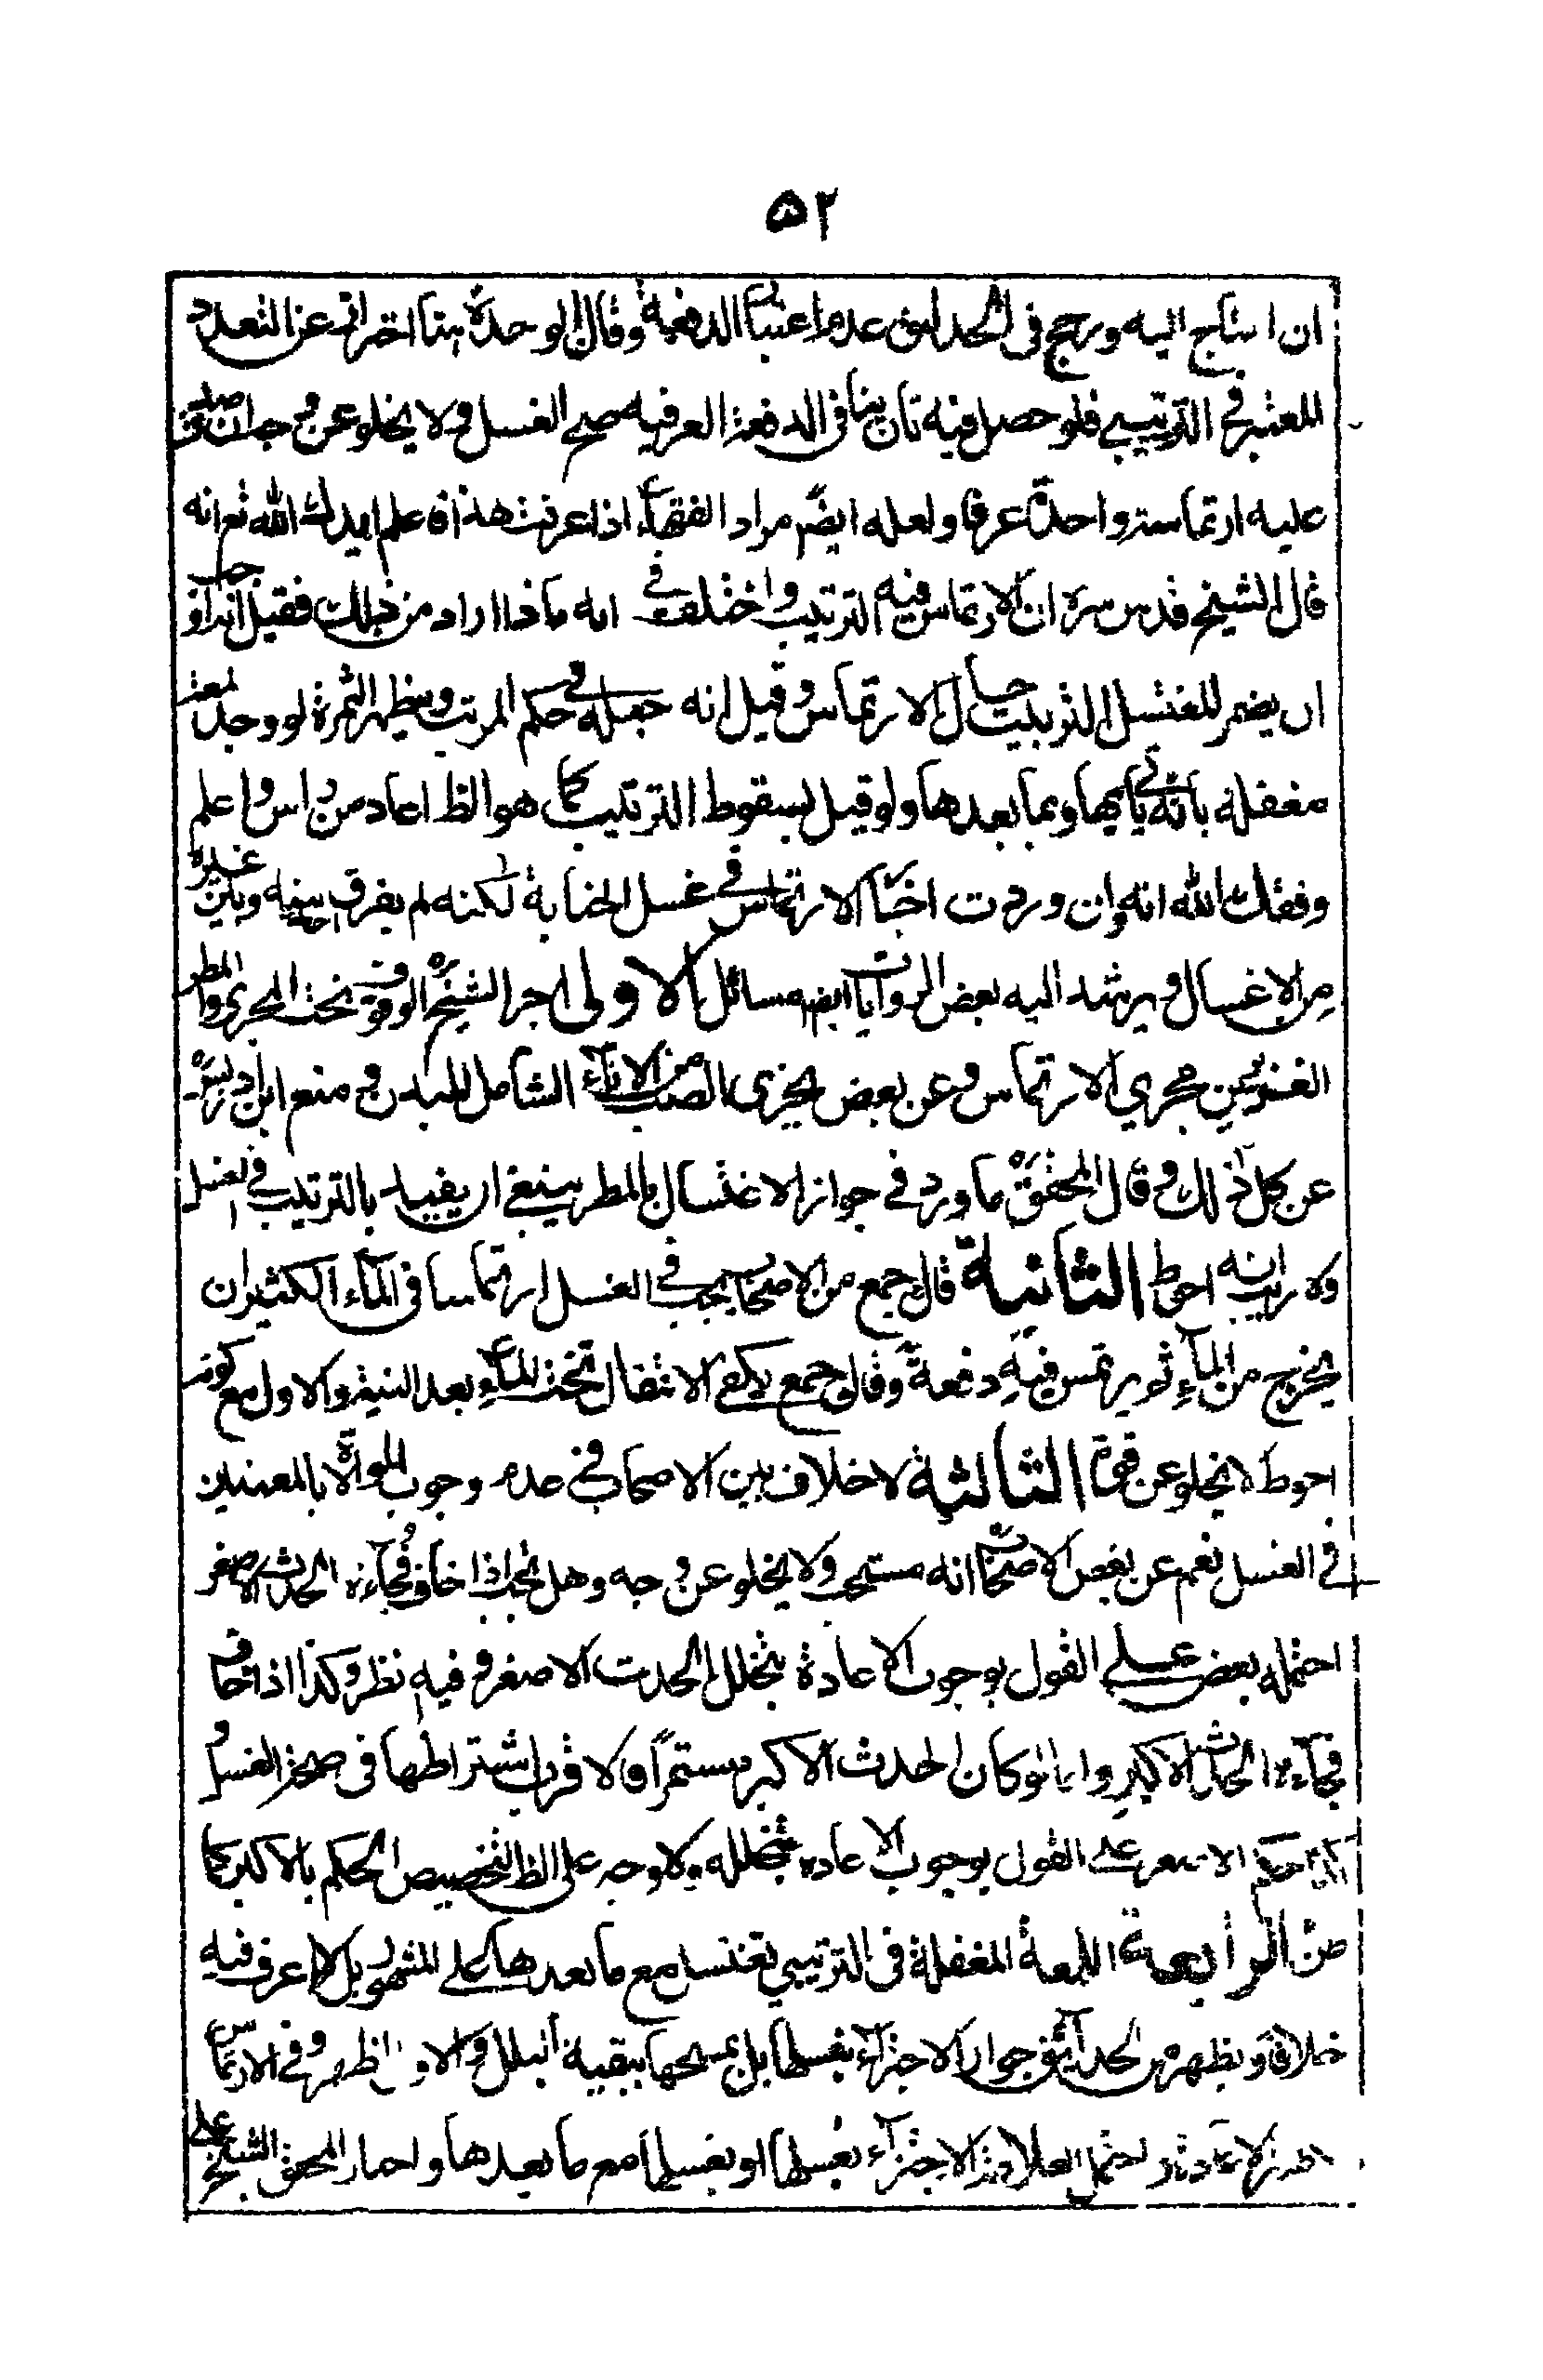 ٥٢
ان احتاج اليه ورجح فى الحدائق عدم اعتبار الدفعية وقال الوحدة هنا احتراز عن التعدد
المعتبر فى الترتيبي فلو حصل فيه تان ينافى الدفعة العرفيه صح الغسل ولا يخلو عن وجه ان صدق
عليه ارتماسة واحدة عرفا ولعله ايضا مراد الفقهاء اذا عرفت هذا فاعلم ايدك الله تع انه
قال الشيخ قدس سره ان الارتماس فيه الترتيب واختلف فى انه ماذا اراد من ذلك فقيل
ان يضمر المغتسل الترتيب حال الارتماس وقيل انه جعله فى حكم المرتب ويظهر الثمرة لو وجد لمعة
مغفلة بانه يأتى بها وبما بعدها ولو قيل بسقوط الترتيب كما هو الظ اعاد من راس واعلم
وفقك الله انه وان وردت اخبار الارتماس فى غسل الجنابة لكنه لم يفرق بينه وبين غيره
من الاغسال ويرشد اليه بعض الروايات ايضا مسائل الاولى اجرا الشيخ ره الوقوف تحت المجرى والمطر
الغزيرين مجرى الارتماس وعن بعض يجزى الصب من الاناء الشامل للبدن ومنع ابن ادريس ره
عن كل ذلك وقال المحقق ره ما ورد فى جواز الاغتسال بالمطر ينبغى ان يقيد بالترتيب فى الغسل
ولا ريب انه احوط الثانية قال جمع من الاصحاب يجب فى الغسل ارتماسا فى الماء الكثير ان
يخرج من الماء ثم يرتمس فيه دفعة وقال جمع يكفى الانتقال تحت الماء بعد النية والاول مع كونه
احوط لا يخلو عن قوة الثالثة لا خلاف بين الاصحاب فى عدم وجوب الموالاة بالمعنيين
فى الغسل نعم عن بعض الاصحاب انه مستحب ولا يخلو عن وجه وهل تجب اذا خاف فجاءة الحدث الاصغر
احتمله بعض على القول بوجوب الاعادة بتخلل الحدث الاصغر وفيه نظر وكذا اذا خاف
فجاءة الحدث الاكبر واما لو كان الحدث الاكبر مستمرا فالاقرب اشتراطها فى صحة الغسل
الاصغر على القول بوجوب الاعادة بتخلله ولا وجه على الظ لتخصيص الحكم بالاكبر كما
ظن الرابعة اللمعة المغفلة فى الترتيبي تغتسل مع ما بعدها كما على المشهور بل لا اعرف فيه
خلافا ويظهر من الحدائق جواز الاجتزاء بغسلها بل بمسحها ببقية البلل والاول اظهر وفى الارتماس
احتمل العلامة الاجتزاء بغسلها او بغسلها مع ما بعدها واختار المحقق الشيخ على